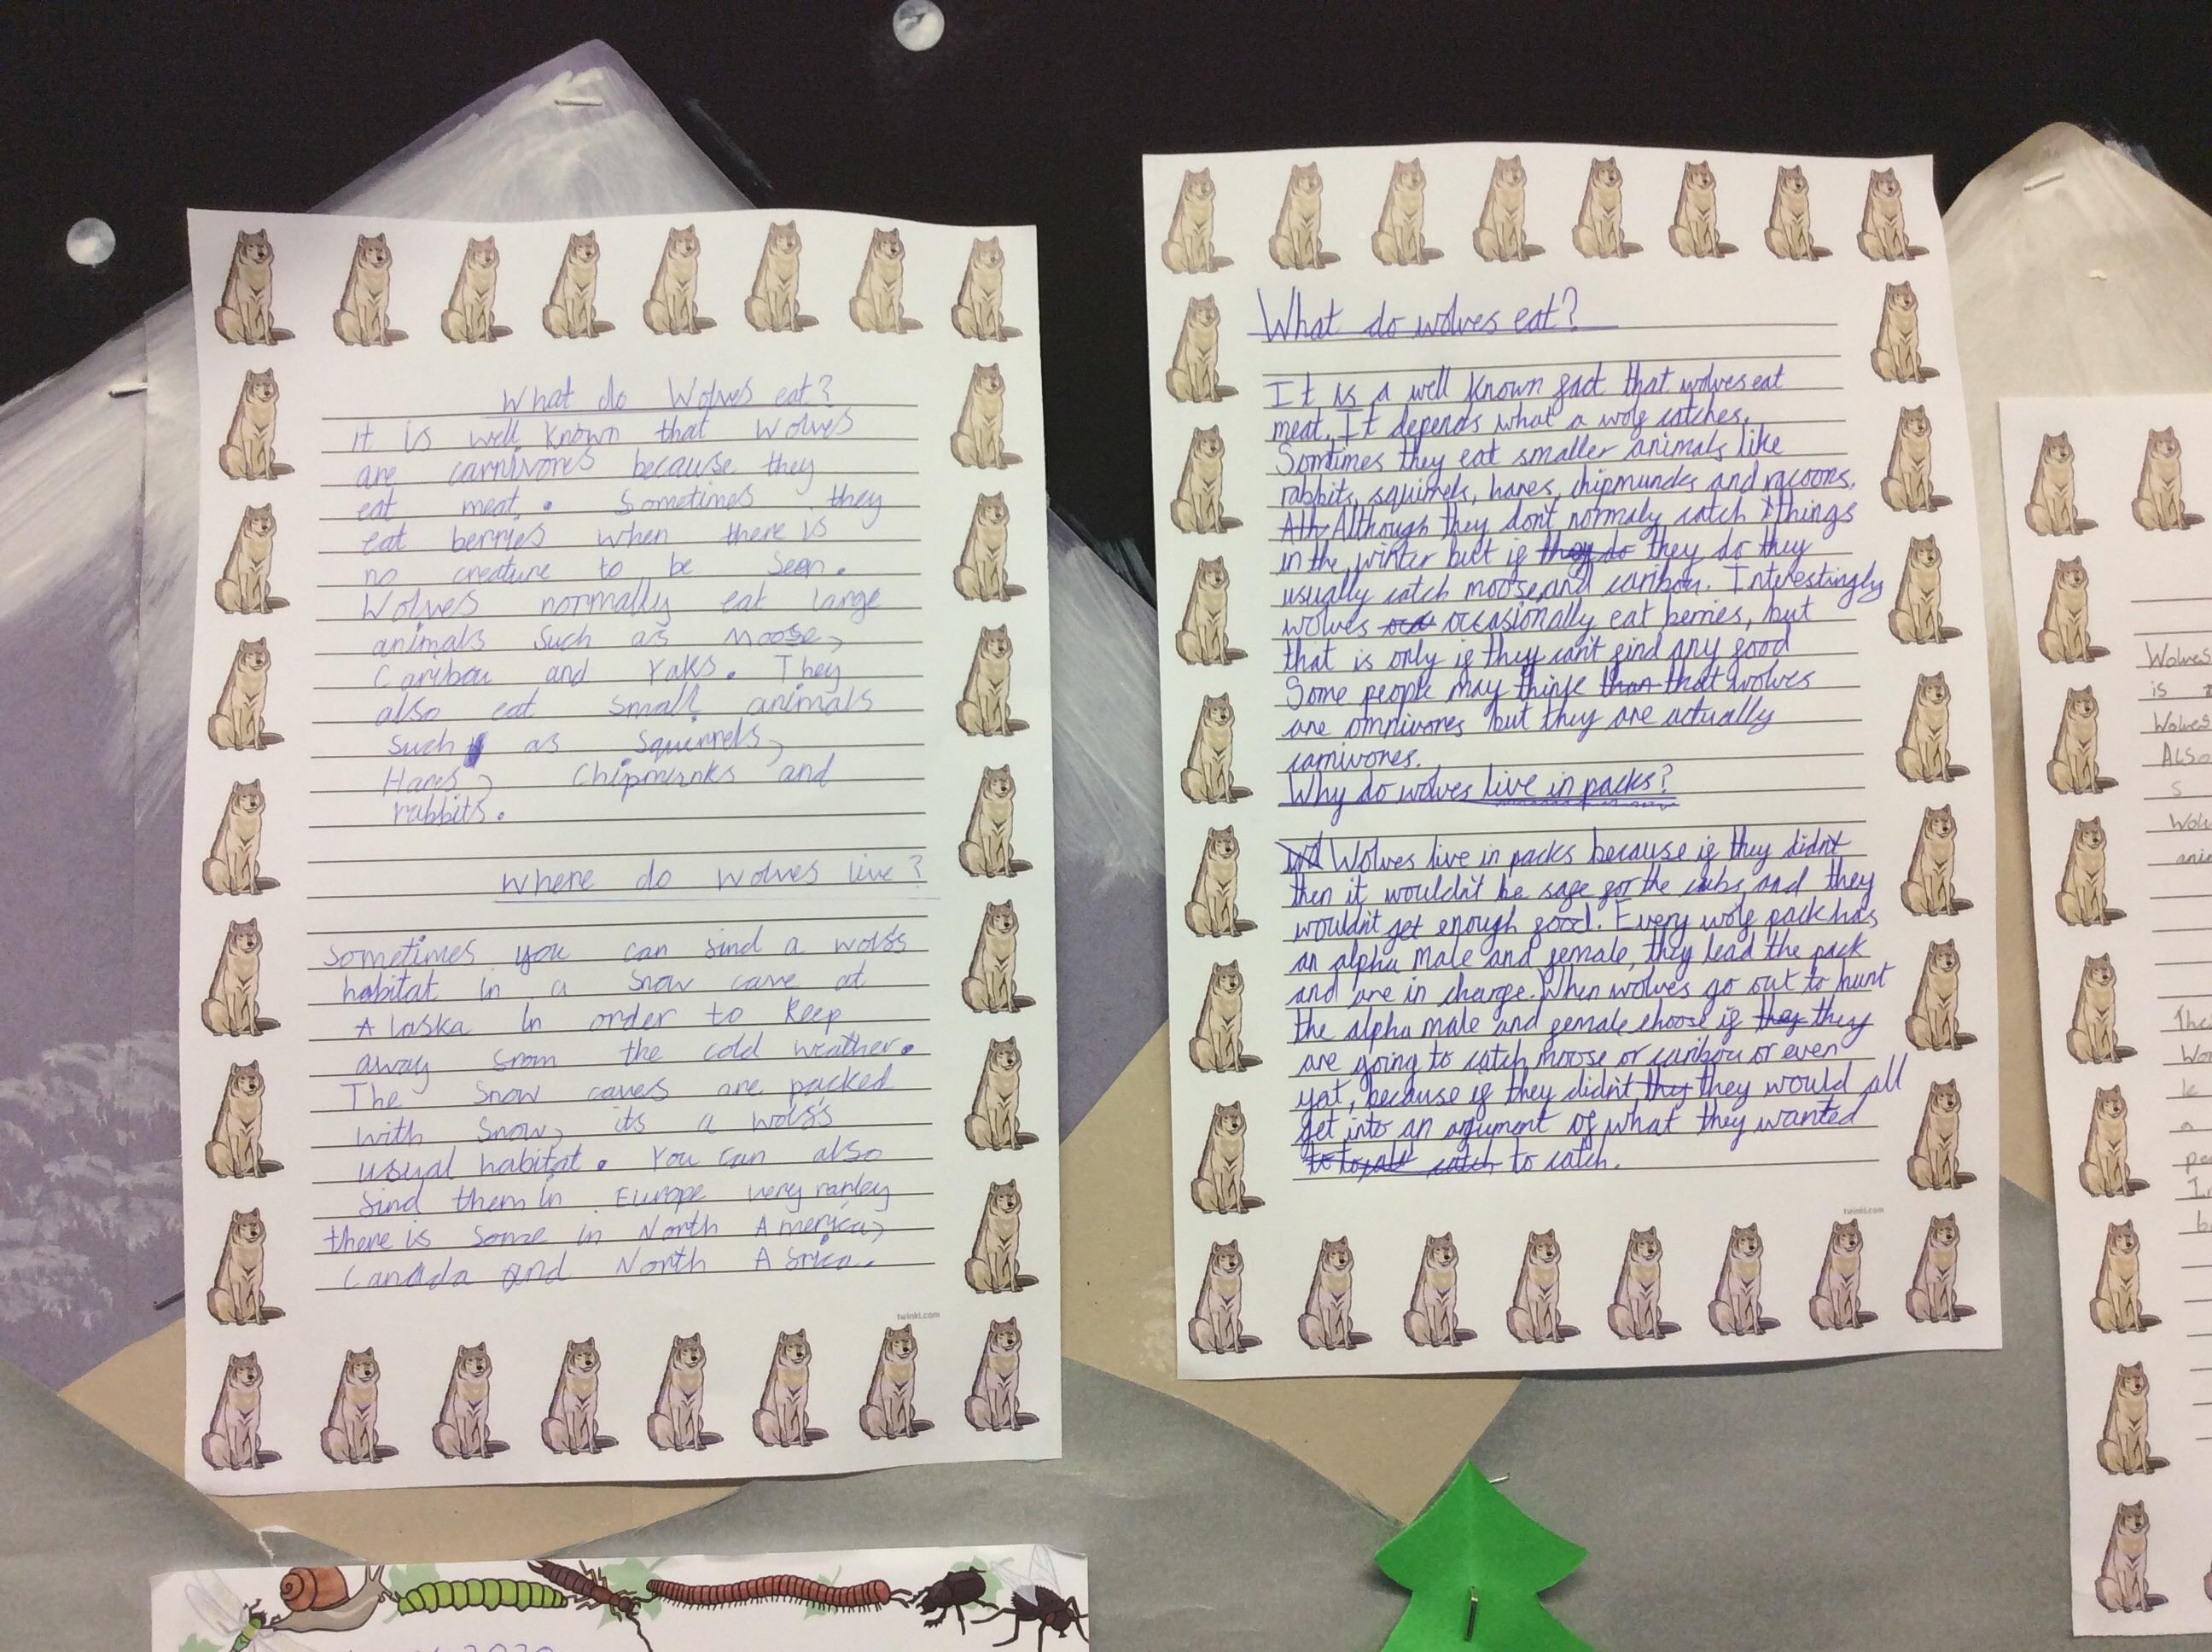 What do Wolves eat?
it is well known that Wolves
are carnivores because they
eat meat. Sometimes they
eat berries when there is
no creature to be Seen.
Wolves normally eat large
animals Such as Moose,
Caribou and Yaks. They
also eat Small animals
Such as Squirrels,
Hares, Chipmunks and
rabbits.
Where do Wolves live?
Sometimes you can find a wolfs
habitat in a Snow cave at
Alaska In order to Keep
away from the cold weather.
The Snow caves are packed
with Snow, its a wolfs
usual habitat. You can also
find them in Europe very rarley
there is Some in North America,
Canada and North Africa.
twinkl.com
What do wolves eat?
It is a well known fact that wolves eat
meat. It depends what a wolf catches.
Somtimes they eat smaller animals like
rabbits, squirrels, hares, chipmuncks and racoons.
Alth Although they don't normaly catch things
in the winter but if they do they do they
usually catch moose and caribou. Interestingly
wolves occasionally eat berries, but
that is only if they can't find any food
Some people may think than that wolves
are omnivores but they are actually
carnivores.
Why do wolves live in packs?
Wolves live in packs because if they didn't
then it wouldn't be safe for the cubs and they
wouldn't get enough food. Every wolf pack has
an alpha male and female, they lead the pack
and are in charge. When wolves go out to hunt
the alpha male and female choose if they they
are going to catch moose or caribou or even
yat, because if they didn't they they would all
get into an argument of what they wanted
catch to catch.
twinkl.com
Wolves
is
Wolves
ALSO
S
Wol
ani
The
Wo
le
a
pe
In
b
2020